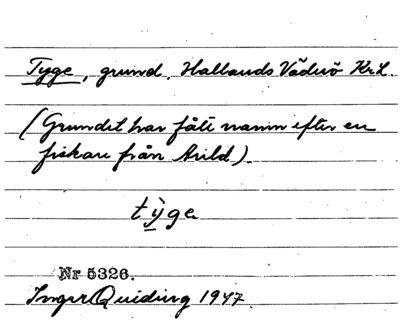 Tyge, grund, Hallands Väderö Kr.L.
(Grundet har fått namn efter en
fiskare från Arild).
tỳge
Nr 5326.
Inger Quiding 1947.